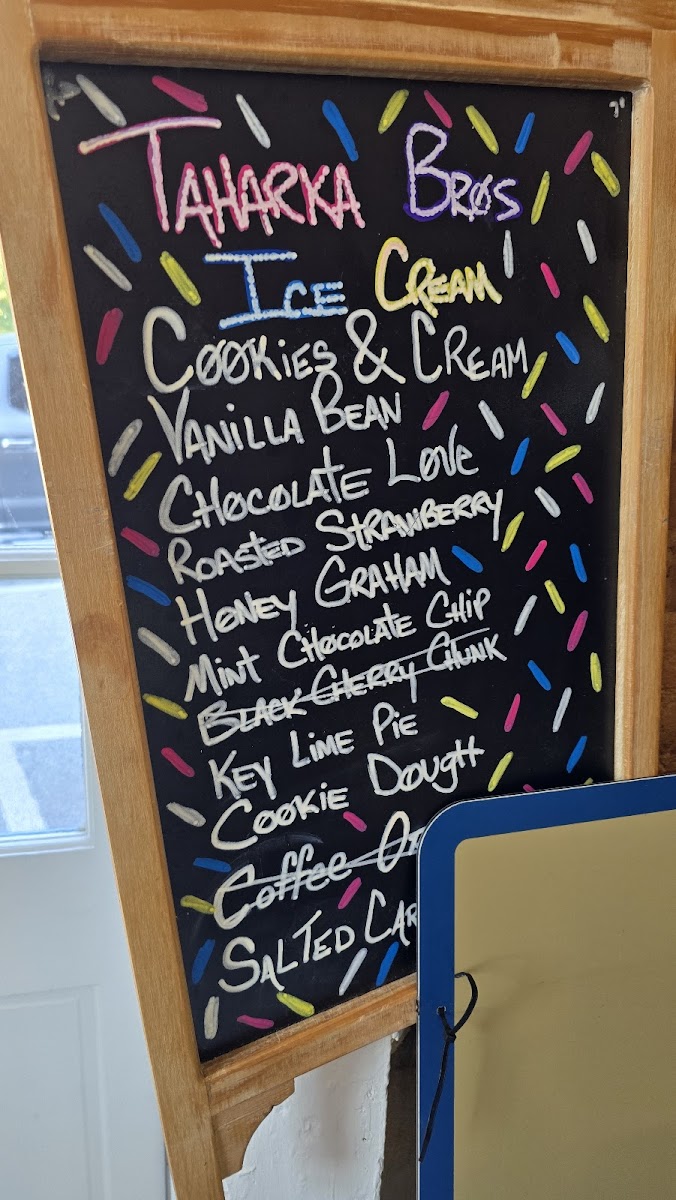 TAHARKA BROS
ICE CREAM
COOKIES & CREAM
VANILLA BEAN
CHOCOLATE LOVE
ROASTED STRAWBERRY
HONEY GRAHAM
MINT CHOCOLATE CHIP
BLACK CHERRY CHUNK
KEY LIME PIE
COOKIE DOUGH
Coffee
SALTED